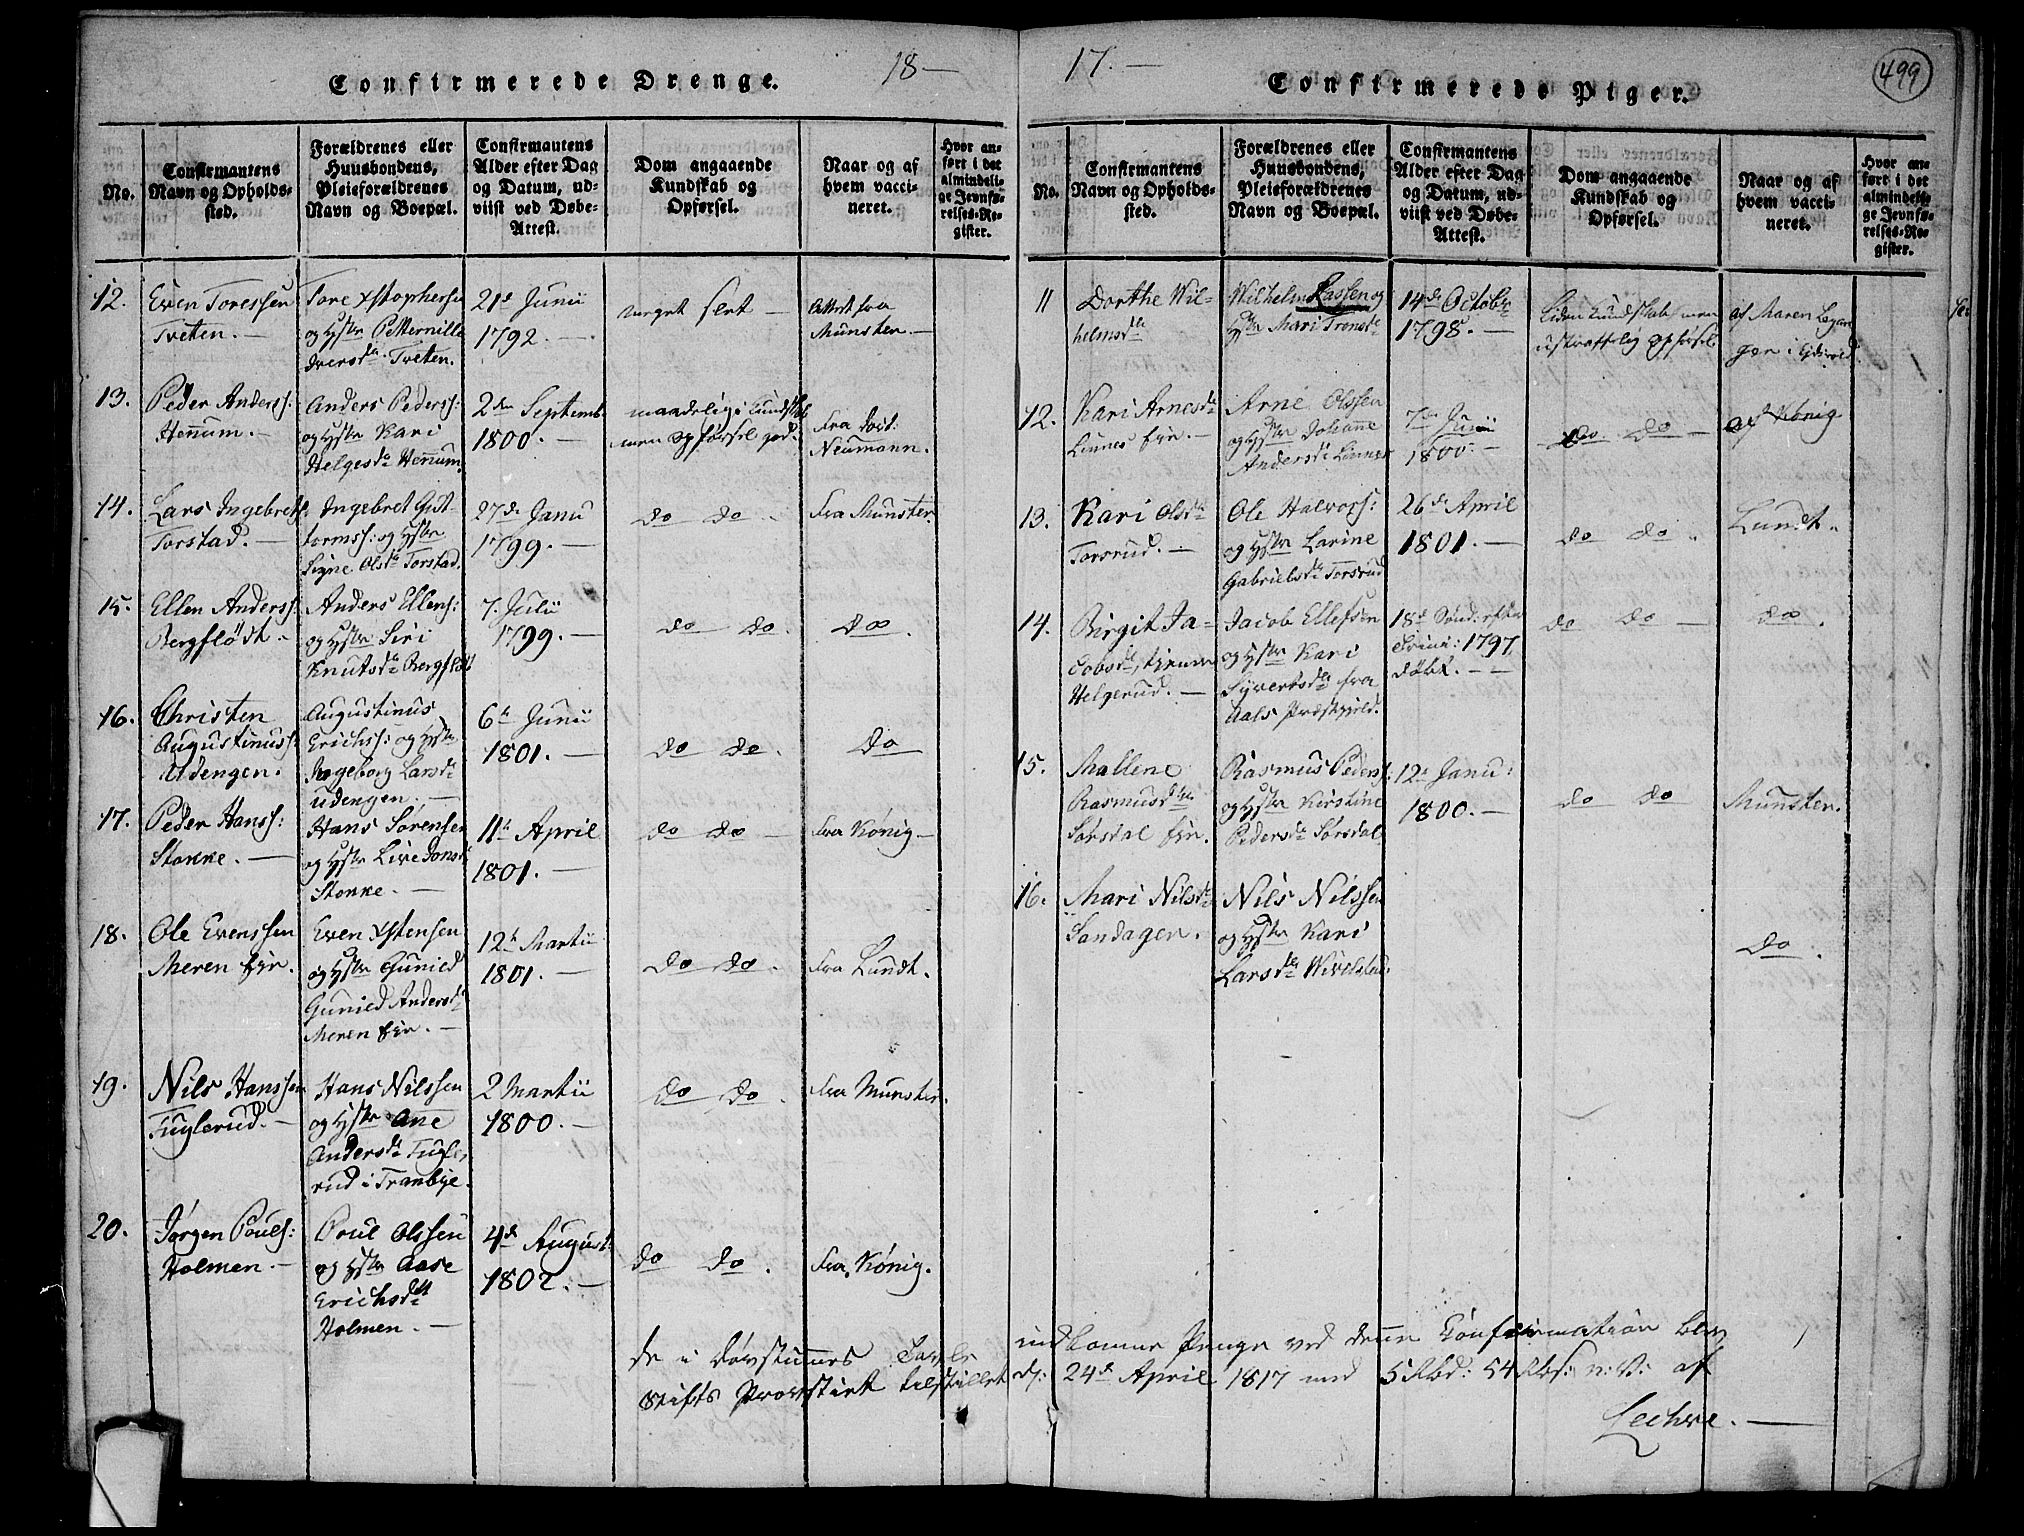 18—
17.—
499
Confirmerede Drenge.
No.
Confirmantens
Navn og Opholds-
sted.
Forældrenes eller
Huusbondens,
Pleieforældrenes
Navn og Boepæl.
Confirmantens
Alder efter Dag
og Datum, ud-
viist ved Døbe-
Attest.
Dom angaaende
Kundskab og
Opførsel.
Naar og af
hvem vacci-
neret.
Hvor an-
ført i det
almindeli-
ge Jevnfø-
relses-Re-
gister.
12.
Even Toressen
Tveten.—
Tore Xstophersen
og Hstr Petternille
Iversdr Tveten.
21de Junii
1792.—
meget slet —
Attest fra
Munster.—
13.
Peder Anderss:
Hennum.—
Anders Pederss:
og Hstr Kari
Helgesdr Hennum.
2den Septemb.
1800.—
maadelig i Kundskab
men Opførsel god.
Fra
Neumann.
14.
Lars Ingebretss:
Torstad.—
Ingebret Gut-
tormss: og Hstr
Signe Olsdr Torstad.
27de Janu
1799.—
do do.
Fra Munster.
15.
Ellen Anderss:
Bergflødt.
Anders Ellens:
og Hstr Siri
Knutsdr Bergflødt
7. Julii
1799.—
do do.
do.
16.
Christen
Augustinuss:
Udengen.
Augustinus
Erichss: og Hstr
Ingeborg Larsdr
Udengen.—
6te Junii
1801.—
do do.
do
17.
Peder Hanss:
Stokke.—
Hans Sørensen
og Hstr Live Jonsdr
Stokke.—
11te April
1801.—
do do —
Fra König.—
18.
Ole Evenssen
Meren Eje.
Even Xstensen
og Hstr Gunild
Gunild Andersdr
Meren Eje.—
12te Martii
1801.—
do do.
Fra Lundt.
19.
Nils Hanssen
Fuglerud.—
Hans Nilssen
og Hstr Anne
Andersdr Fugle-
rud i Tranbye.
2 Martii
1800.—
do do.
Fra Munster.
20.
Jørgen Pouls:
Holmen.—
Poul Olssen
og Hstr Aase
Erichsdtr
Holmen.—
4de August
1802.—
do do.
Fra König.
Confirmerede Piger.
No.
Confirmantens
Navn og Opholds-
sted.
Forældrenes eller
Huusbondens,
Pleieforældrenes
Navn og Boepæl.
Confirmantens
Alder efter Dag
og Datum, ud-
viist ved Døbe-
Attest.
Dom angaaende
Kundskab og
Opførsel.
Naar og af
hvem vacci-
neret.
Hvor an-
ført i det
almindeli-
ge Jevnfø-
relses-Re-
gister.
11
Dorthe Wil-
helmsdr
Wilhelm Lassen og
Hstr Mari Tronsdr
14de Octobr
1798.—
liden Kundskab men
ustraffelig Opførsel
af Maren
12.
Kari Arnesdr
Linnes Eje.—
Arne Olssen
og Hstr Johanne
Andersdr Linnes
7de Junii
1800.—
do do —
af König
13.
Kari Olsdr
Torsrud.—
Ole Halvorss:
og Hstr Larine
Gabrielsdr Torsrud
26de April
1801.—
do do.
Lundt.
14.
Birgit Ja-
cobsdr,
Helgerud.—
Jacob Ellefsen
og Hstr Kari
Syvertsdr fra
Aals Præstgjeld.
18de Sønd: efter
Trini: 1797
døbt.—
do do —
do.
15.
Mallene
Rasmusdtr
Sørsdal Eje.
Rasmus Pederss:
og Hstr Kirstine
Pedersdr Sørsdal
12te Janu:
1800.—
do do
Munster.
16.
Mari Nilsdr
Sandagen.
Nils Nilssen
og Hstr Kari
Larsdr Wivelstad.
do.
de i Døvstummes Casse indkomne Penge ved denne Confirmation blev
Stifts Provstiet tilstillet d: 24de April 1817 med 5 Rbd: 54 Rbs: n: V: af
Lechve.—